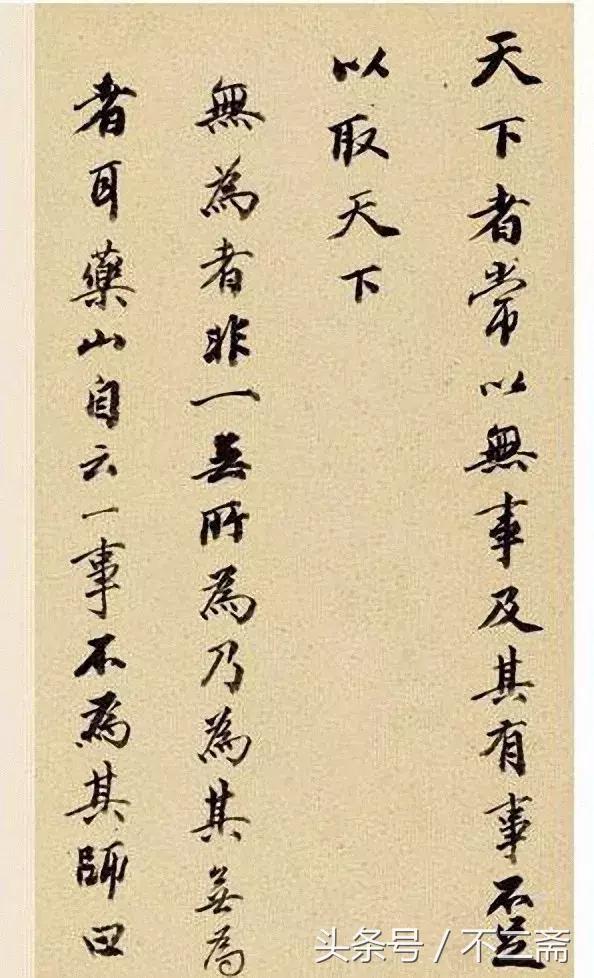 天下者常以無事及其有事不足
以取天下
無為者非一無所為乃為其無為
者耳藥山自云一事不為其師曰
头条号 / 不二斋